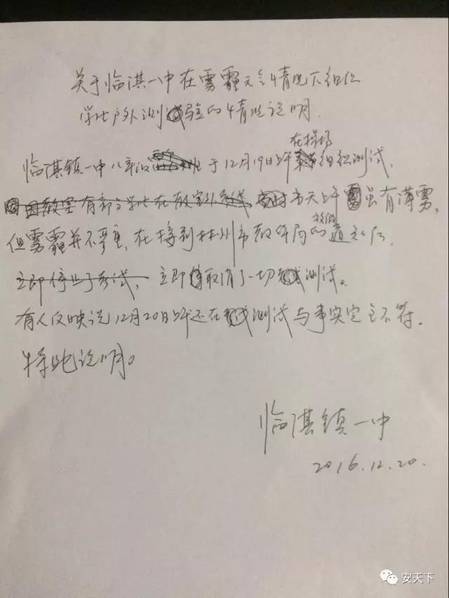 关于临淇一中在雾霾天气情况下组织
学生户外测试验的情况说明.
临淇镇一中八年级于12月19日上午在操场组织测试,
当天上午虽有薄雾,
但雾霾并不重,在接到林州市教体局的通知后,
立即停止了考试,立即取消了一切测试。
有人反映说12月20日上午还在测试与事实完全不符.
特此说明。
临淇镇一中
2016.12.20.
安天下